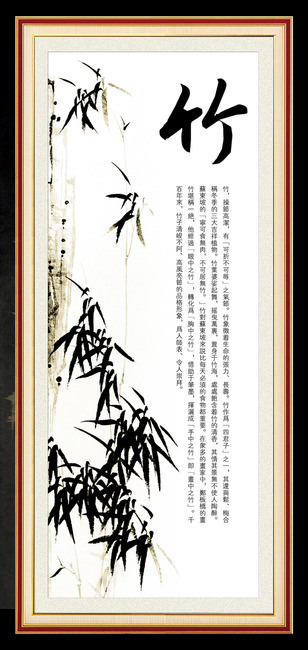 竹
竹，操節高潔，有「可折不可辱」之氣節。竹象徵着生命的張力、長壽。竹作爲「四君子」之一，其還與鬆、梅合
稱冬季的三大吉祥植物。竹葉婆娑起舞，摇曳萬裏，置身于竹海，處處飽含着竹的清香，其情其景無不使人陶醉。
蘇東坡的「寧可食無肉，不可居無竹。」竹對蘇東坡來説比每天必須的食物都重要。在衆多的畫家中，鄭板橋的畫
竹堪稱一絶，他經過「眼中之竹」，轉化爲「胸中之竹」，借助于筆墨，揮灑成「手中之竹」即「畫中之竹」。千
百年來，竹子清峻不阿、高風亮節的品格形象，爲人師表，令人崇拜。